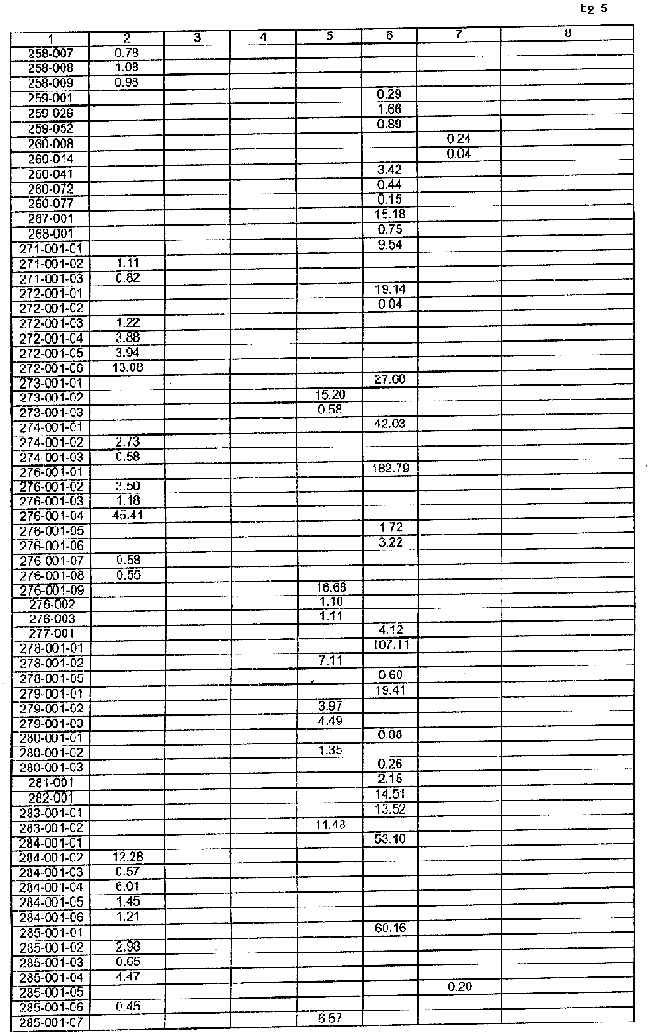 tg 5
1 2 3 4 5 6 7 8
258-007 0.78
258-008 1.08
258-009 0.93
259-001 0.29
259-029 1.66
259-052 0.89
260-008 0.24
260-014 0.04
260-041 3.42
260-072 0.44
260-077 0.15
267-001 15.18
268-001 0.75
271-001-01 9.54
271-001-02 1.11
271-001-03 0.82
272-001-01 19.14
272-001-02 0.04
272-001-03 1.22
272-001-04 3.88
272-001-05 3.94
272-001-06 13.08
273-001-01 27.60
273-001-02 15.20
273-001-03 0.58
274-001-01 42.03
274-001-02 2.73
274-001-03 0.58
276-001-01 182.79
276-001-02 3.50
276-001-03 1.18
276-001-04 45.41
276-001-05 1.72
276-001-06 3.22
276-001-07 0.58
276-001-08 0.55
276-001-09 16.68
276-002 1.10
276-003 1.11
277-001 4.12
278-001-01 107.11
278-001-02 7.11
278-001-05 0.60
279-001-01 19.41
279-001-02 3.97
279-001-03 4.49
280-001-01 0.08
280-001-02 1.35
280-001-03 0.26
281-001 2.16
282-001 14.51
283-001-01 13.52
283-001-02 11.43
284-001-01 53.10
284-001-02 12.28
284-001-03 0.57
284-001-04 6.01
284-001-05 1.45
284-001-06 1.21
285-001-01 60.16
285-001-02 2.93
285-001-03 0.65
285-001-04 4.47
285-001-05 0.20
285-001-06 0.45
285-001-07 6.57